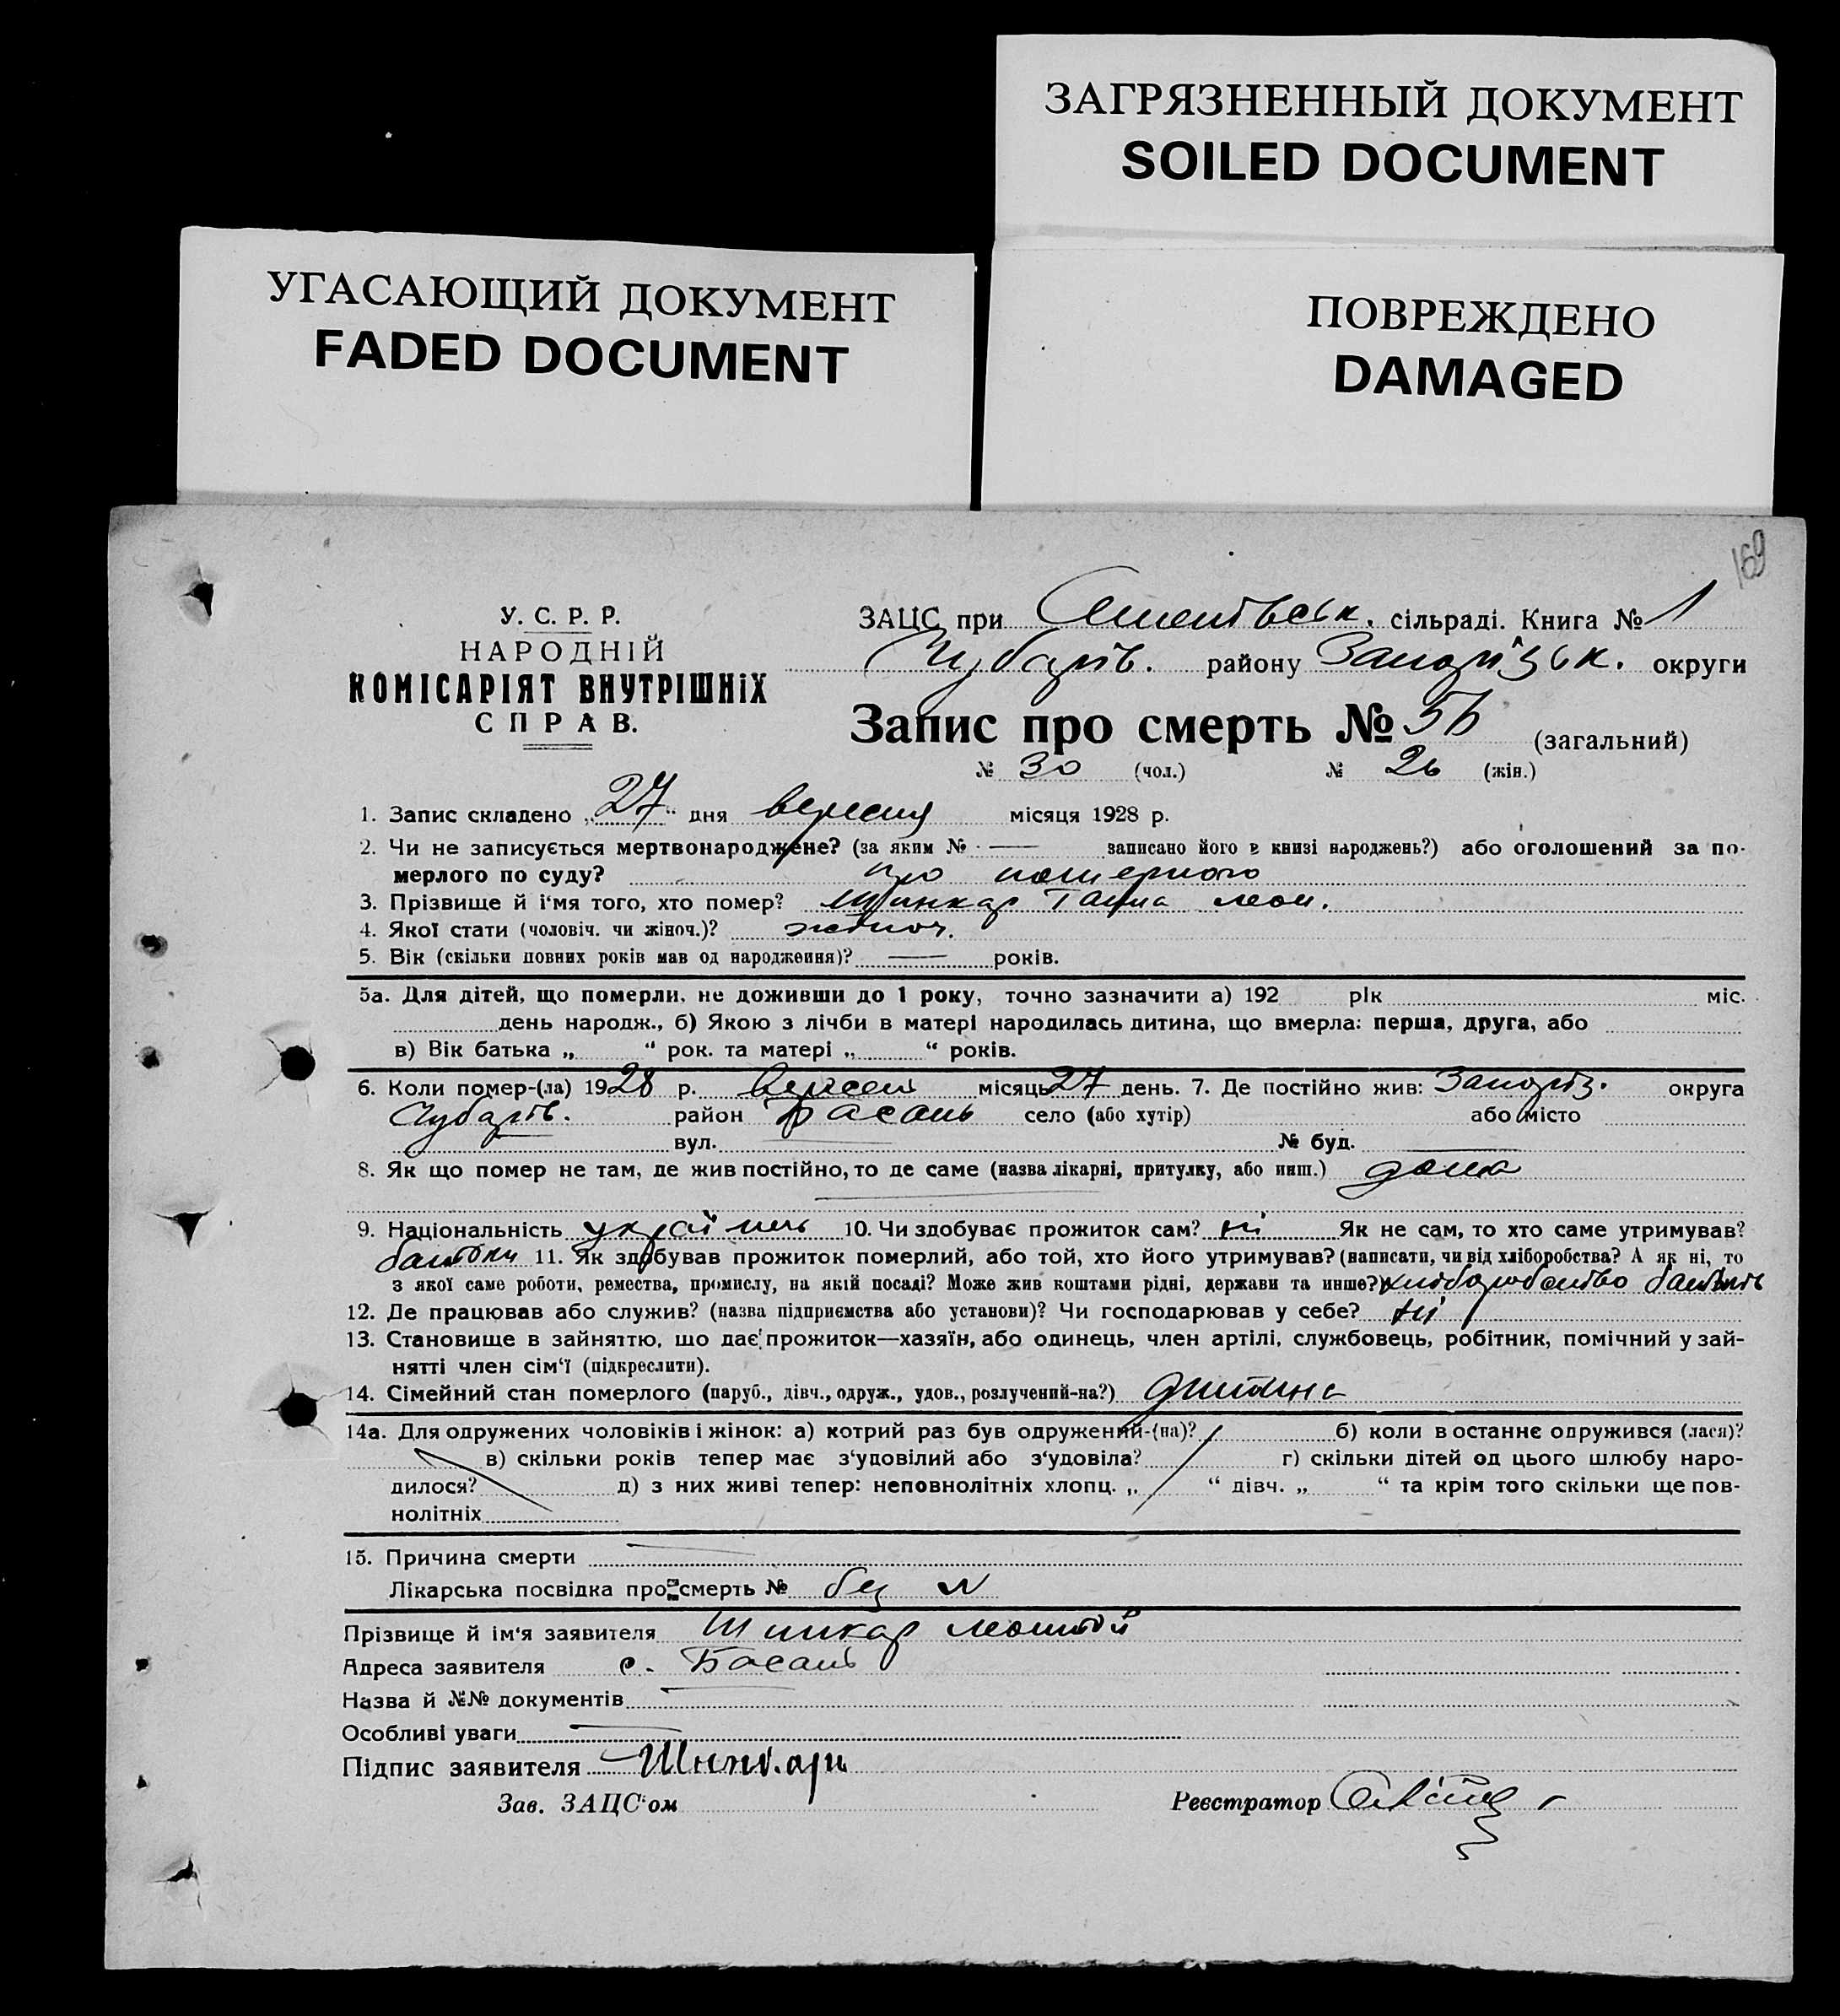 ЗАГРЯЗНЕННЫЙ ДОКУМЕНТ
SOILED DOCUMENT
УГАСАЮЩИЙ ДОКУМЕНТ
FADED DOCUMENT
ПОВРЕЖДЕНО
DAMAGED
169
У. С. Р. Р.
НАРОДНІЙ
КОМІСАРІЯТ ВНУТРІШНІХ
СПРАВ.
ЗАЦС при сільраді. Книга № 1
Чубарів. району Запорізьк. округи
Запис про смерть № 56 (загальний)
№ 30 (чол.) № 26 (жін.)
1. Запис складено „27“ дня вересня місяця 1928 р.
2. Чи не записується мертвонароджене? (за яким № — записано його в книзі народжень?) або оголошений за по-
мерлого по суду? про померного
3. Прізвище й і'мя того, хто помер? Шинкар Ганна
4. Якої стати (чоловіч. чи жіноч.)? жіноч.
5. Вік (скільки повних років мав од народження)? — років.
5а. Для дітей, що померли, не доживши до 1 року, точно зазначити а) 192 рік міс.
день народж., б) Якою з лічби в матері народилась дитина, що вмерла: перша, друга, або
в) Вік батька „ “ рок. та матері „ “ років.
6. Коли помер-(ла) 1928 р. вересня місяць 27 день. 7. Де постійно жив: Запоріз. округа
Чубарів. район Басань село (або хутір) або місто
вул. — № буд. —
8. Як що помер не там, де жив постійно, то де саме (назва лікарні, притулку, або инш.) дома
9. Національність українь 10. Чи здобуває прожиток сам? ні Як не сам, то хто саме утримував?
батьки 11. Як здобував прожиток померлий, або той, хто його утримував? (написати, чи від хліборобства? А як ні, то
з якої саме роботи, ремества, промислу, на якій посаді? Може жив коштами рідні, держави та инше?) хліборобство батьків
12. Де працював або служив? (назва підприємства або установи)? Чи господарював у себе? ні
13. Становище в зайняттю, що дає прожиток—хазяїн, або одинець, член артілі, службовець, робітник, помічний у зай-
нятті член сім'ї (підкреслити).
14. Сімейний стан померлого (паруб., дівч., одруж., удов., розлучений-на?) дитина
14а. Для одружених чоловіків і жінок: а) котрий раз був одружений-(на)? б) коли в останнє одружився (лася)?
в) скільки років тепер має з'удовілий або з'удовіла? г) скільки дітей од цього шлюбу наро-
дилося? д) з них живі тепер: неповнолітніх хлопц. „ “ дівч. „ “ та крім того скільки ще пов-
нолітніх
15. Причина смерти —
Лікарська посвідка про смерть №
Прізвище й ім'я заявителя Шинкар
Адреса заявителя с. Басань
Назва й №№ документів —
Особливі уваги —
Підпис заявителя Шинкарь
Зав. ЗАЦС'ом Реєстратор